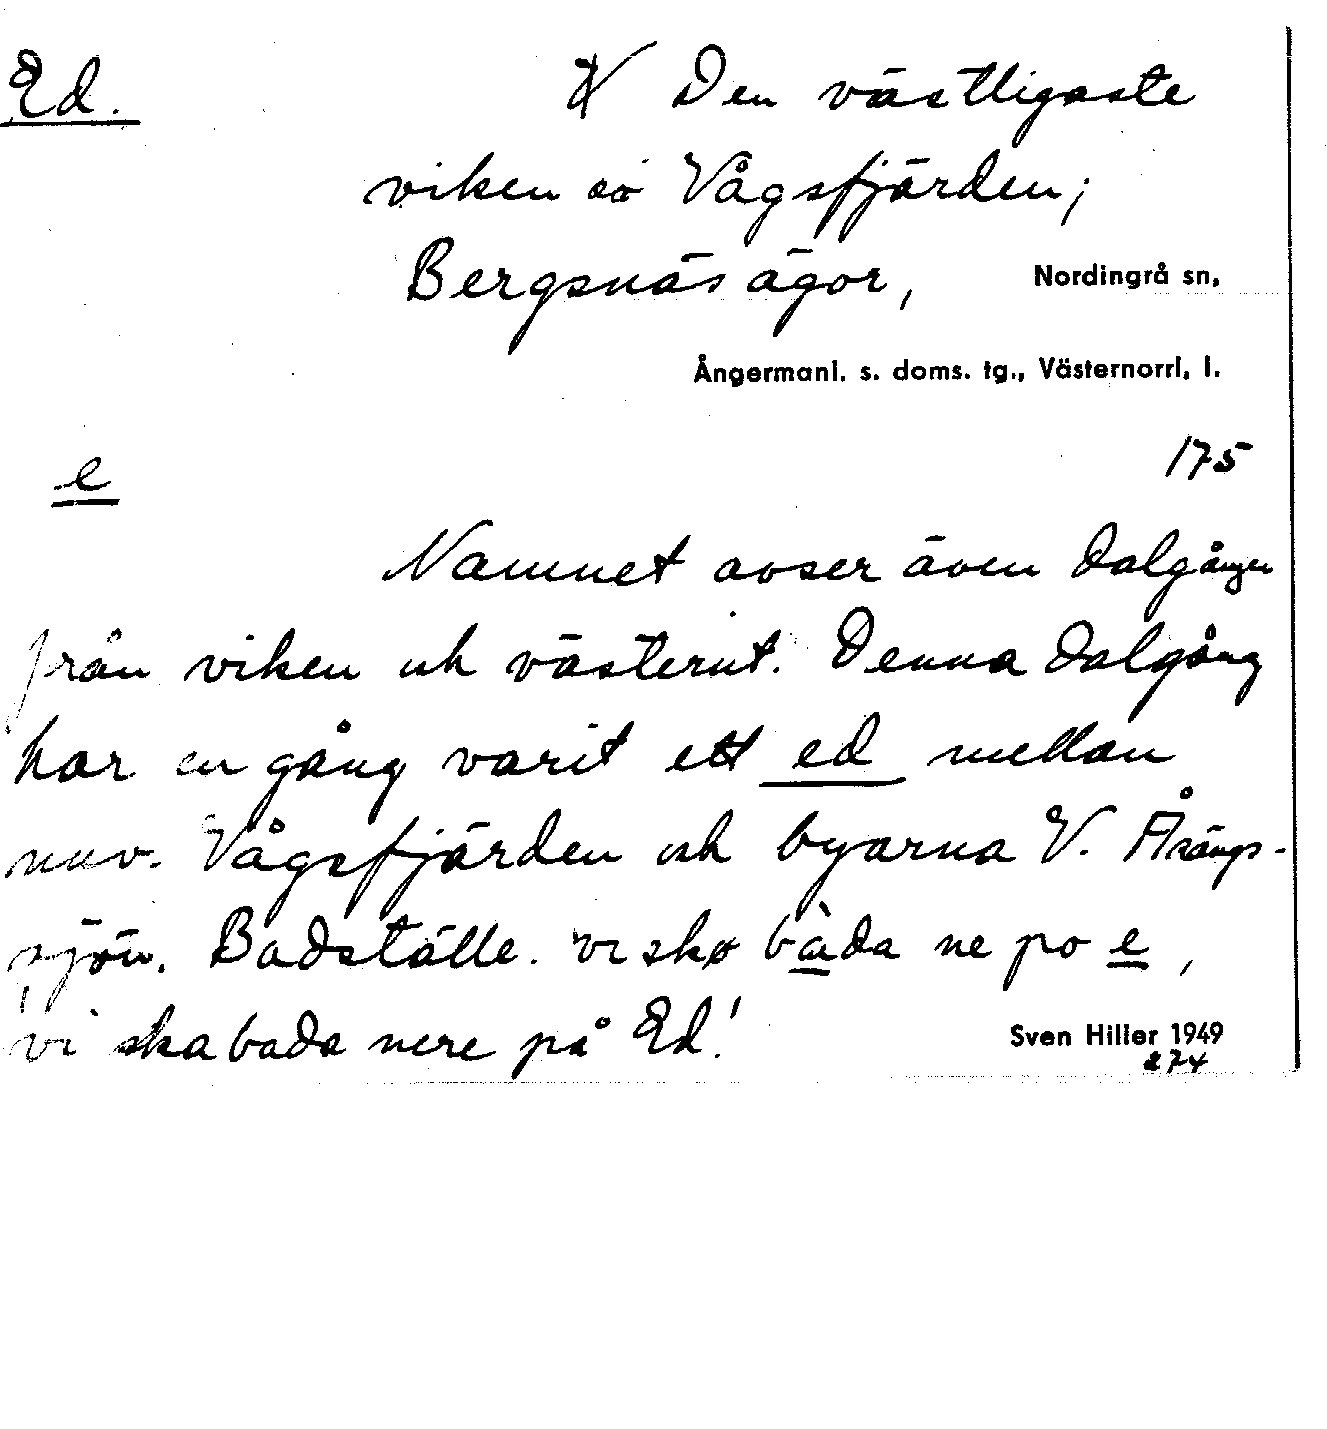 Ed. Den västligaste
viken av Vågsfjärden;
Bergsnäs ägor, Nordingrå sn,
Ångermanl. s. doms. tg., Västernorrl. l.
e 175
Namnet avser även dalgången
från viken och västerut. Denna dalgång
har en gång varit ett ed mellan
nuv. Vågsfjärden och byarna V. Åsängs-
sjön. Badställe. vi skɷ bàda ne po e,
vi ska bada nere på Ed!
Sven Hiller 1949
274